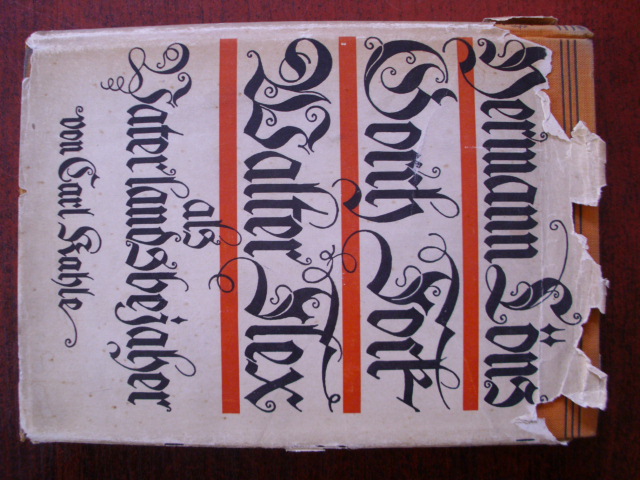 Hermann Löns
Gorch Fock
Walter Flex
als
Vaterlandsbejaher
von Carl Kahle